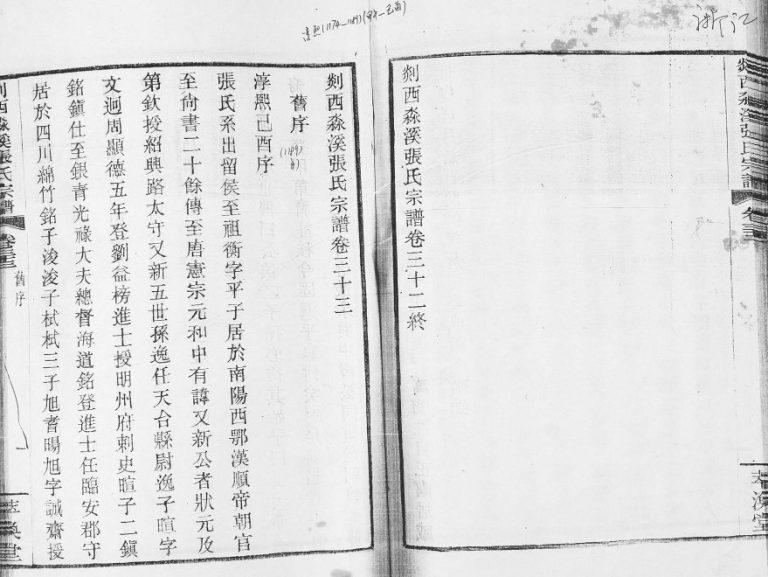 浙江
剡西淼溪張氏宗譜 卷三十二
剡西淼溪張氏宗譜卷三十二終
剡西淼溪張氏宗譜卷三十三
舊序
淳熙己酉序
(1189)
張氏系出留侯至祖衡字平子居於南陽西鄂漢順帝朝官
至尚書二十餘傳至唐憲宗元和中有諱又新公者狀元及
第欽授紹興路太守又新五世孫逸任天台縣尉逸子暄字
文迥周顯德五年登劉益榜進士授明州府剌史暄子二鎭
銘鎭仕至銀青光祿大夫總督海道銘登進士任臨安郡守
居於四川綿竹銘子浚浚子栻栻三子旭耆暘旭字誠齋授
剡西淼溪張氏宗譜
舊序